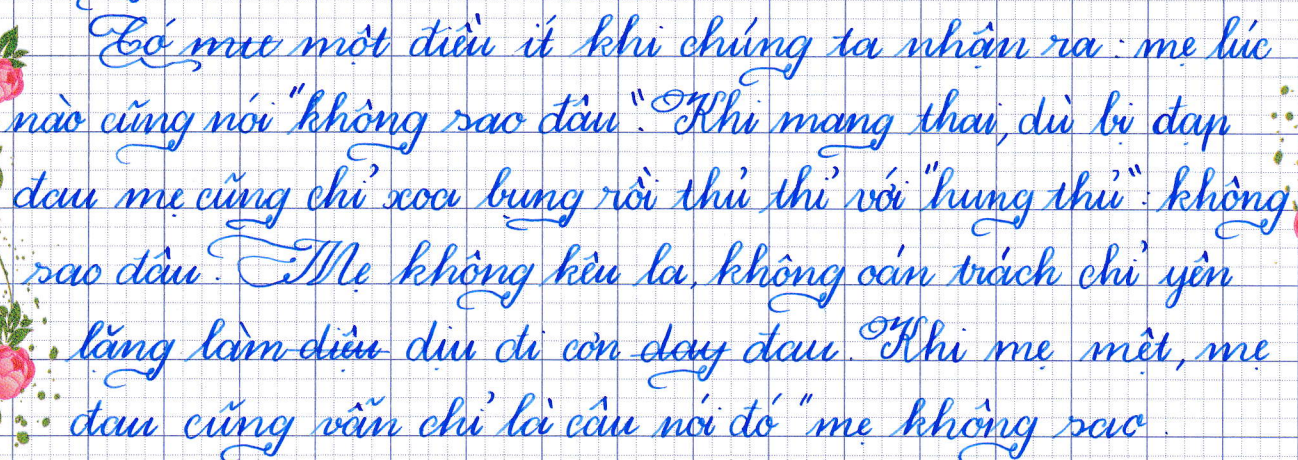 Có mut một điều ít khi chúng ta nhận ra : mẹ lúc
nào cũng nói "không sao đâu". Khi mang thai, dù bị đạp
đau mẹ cũng chỉ xoa bụng rồi thủ thỉ với "hung thủ": không
sao đâu. Mẹ không kêu la, không oán trách chỉ yên
lặng làm diệu dịu đi cơn day đau. Khi mẹ mệt, mẹ
đau cũng vẫn chỉ là câu nói đó "mẹ không sao.